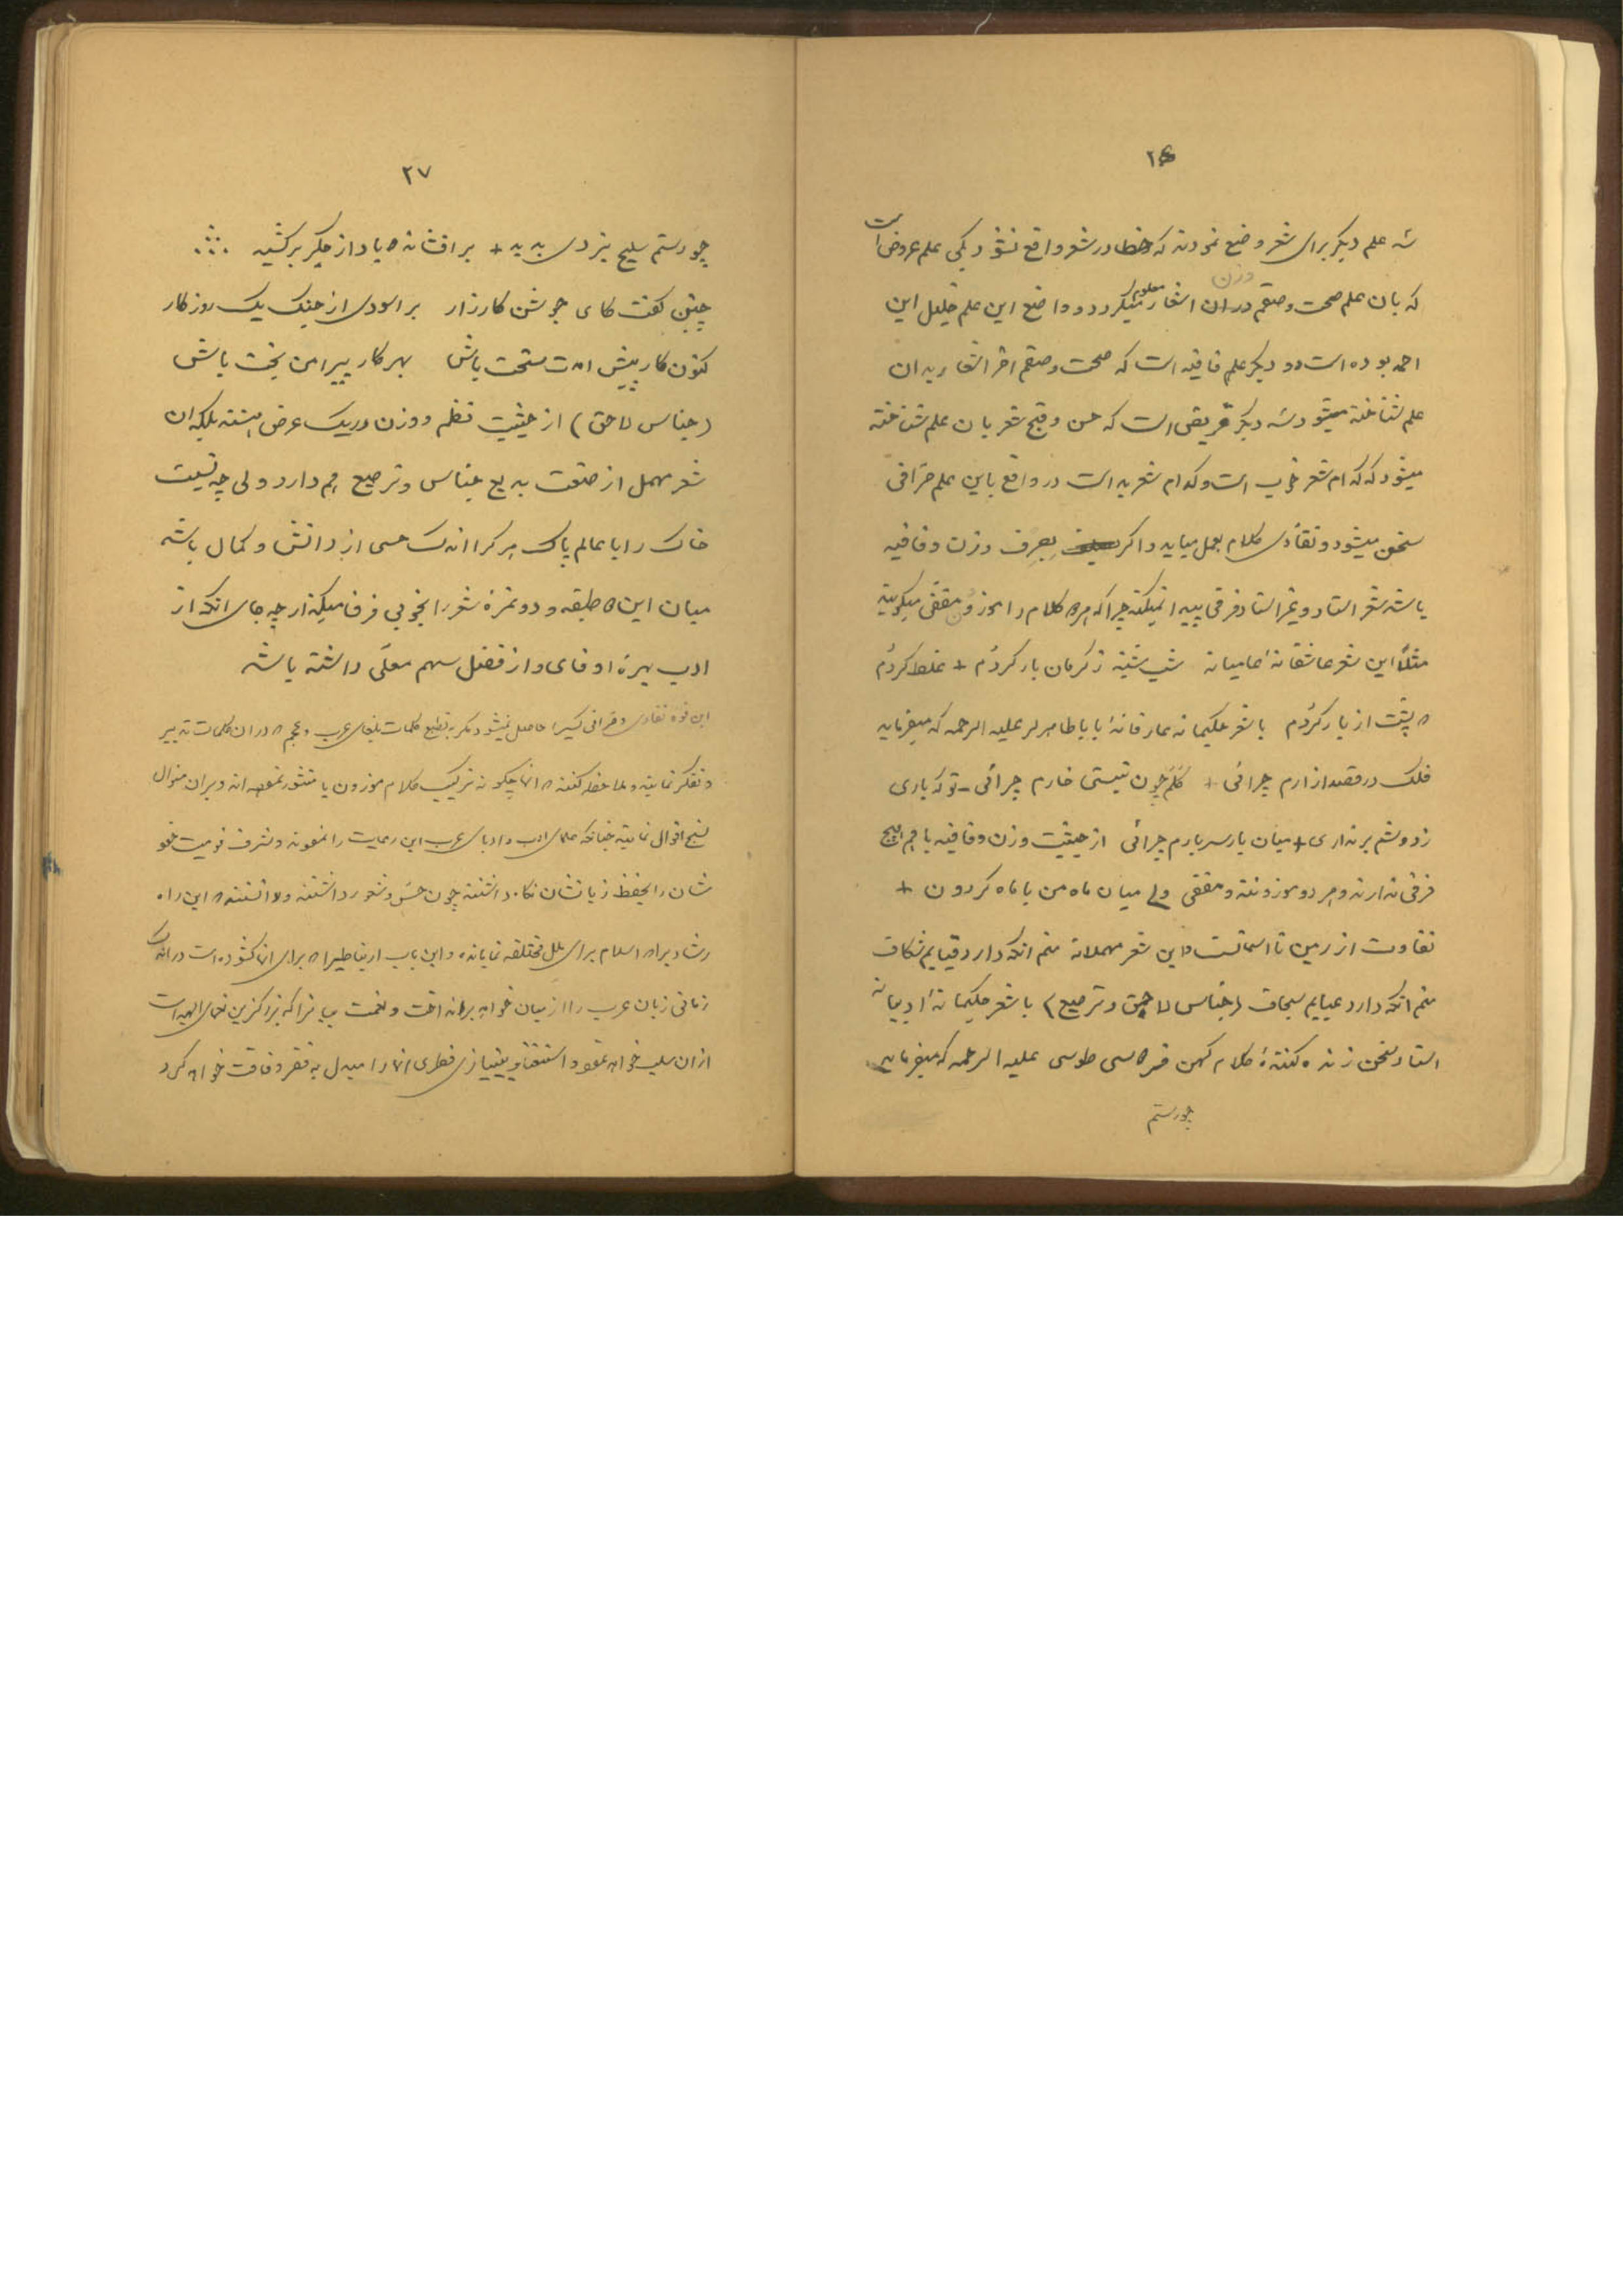 ۲۶
سه علم دیگر برای شعر وضع نمودند که خطا در شعر واقع نشود یکی علم عروض است
که بان علم صحت و سقم وزن اشعار معلوم میگردد و واضع این علم خلیل ابن
احمد بوده است دو دیگر علم قافیه است که صحت و سقم اخر اشعار بدان
علم شناخته میشود سه دیگر قریض است که حسن و قبح شعر بان علم شناخته
میشود که کدام شعر خوب است و کدام شعر بد است در واقع باین علم صرافی
سخن میشود و نقادی کلام بعمل میاید و اگر بصرف وزن و قافیه
باشد شعر استاد و غیر استاد فرقی پیدا نمیکند چراکه هر دو کلام را موزون و مقفی میگویند
مثلاً این شعر عاشقانهٔ عامیانه شب شنبه ز کرمان بار کردُم + غلط کردُم
که پشت از یار کردُم با شعر حکیمانه عارفانهٔ باباطاهر لر علیه الرحمه که میفرماید
فلک در قصد ازارم چرائی + گلم چون نیستی خارم چرائی - تو که باری
ز دوشم برنداری + میان بار سربارم چرائی از حیثیت وزن و قافیه با هم هیچ
فرقی ندارند و هر دو موزونند و مقفی ولی میان ماه من با ماه گردون +
تفاوت از زمین تا اسمانست و این شعر مهملانه منم انکه دارد قبایم شکاف
منم انکه دارد عبایم سجاف (جناس لاحق و ترصیع) با شعر حکیمانهٔ ادیبانه
استاد سخن زنده کنندهٔ کلام کهن فردوسی طوسی علیه الرحمه که میفرماید
چو رستم
۲۷
چو رستم سلیح نبردی بدید + برافشاند و باد از جگر برکشید
چنین گفت کای جوشن کارزار براسودی از جنگ یک روزگار
کنون کار پیش امدت سخت باش بهر کار پیراهن بخت باش
(جناس لاحق) از حیثیت نظم و وزن در یک عرض هستند بلکه ان
شعر مهمل از صنعت بدیع جناس و ترصیع هم دارد ولی چه نسبت
خاک را با عالم پاک هر کرا اندک حسی از دانش و کمال باشد
میان این دو طبقه و دو نمرهٔ شعر را بخوبی فرق میگذارد چه جای انکه از
ادب بهرهٔ اوفای و از فضل سهم معلّی داشته باشد
این قوه نقادی و صرافی کسیرا حاصل نمیشود مگر به تطبیع کلمات بلغای عرب و عجم که در ان کلمات تدبیر
و تفکر نمایند و ملاحظه کنند که انها چگونه ترکیب کلام موزون یا منثور نموده اند و بران منوال
نسج اقوال نمایند چنانکه علمای ادب و ادبای عرب این رعایت را نمودند و شرف قومیت خو
شان را بحفظ زبانشان نگاه داشتند چون حس و شعور داشتند و دانستند که این راه
رشاد براه اسلام برای ملل مختلفه نمایانده و این باب ارتباطیرا که برای انها گشوده است در اندک
زمانی زبان عرب را از میان خواهد برانداخت و نعمت بیانرا که بزرگترین نعمای الهیه است
از ان سلب خواهد نمود و استغنا و بینیازی فطری انها را مبدل به فقر و فاقت خواهد کرد